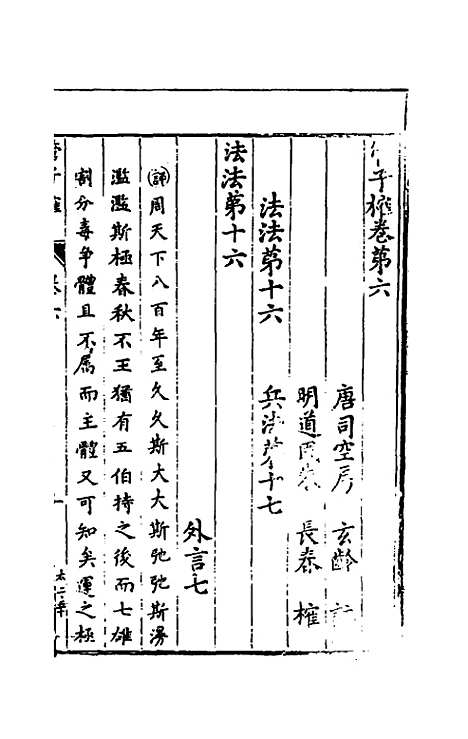 子榷卷第六
唐司空房 玄齡
明道民 長春 榷
法法第十六 兵法第十七
法法第十六
外言七
評周天下八百年至久久斯大大斯弛弛斯濫
濫濫斯極春秋不王猶有五伯持之後而七雄
割分毒爭體且不属而主體又可知矣運之極